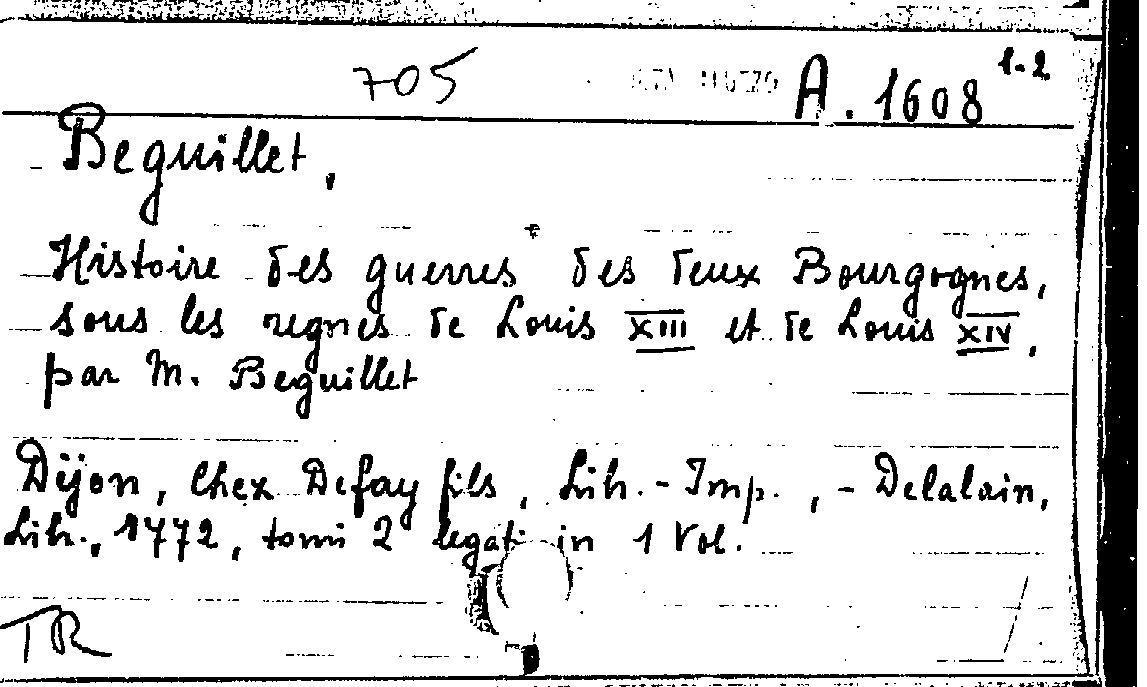 705 A. 1608 1-2
Beguillet,
Histoire des guerres des deux Bourgognes,
sous les regnes de Louis XIII et de Louis XIV,
par M. Beguillet
Dijon, Chez Defay fils, Lib.-Imp., - Delalain,
Lib., 1772, tomi 2 legati in 1 Vol.
TR